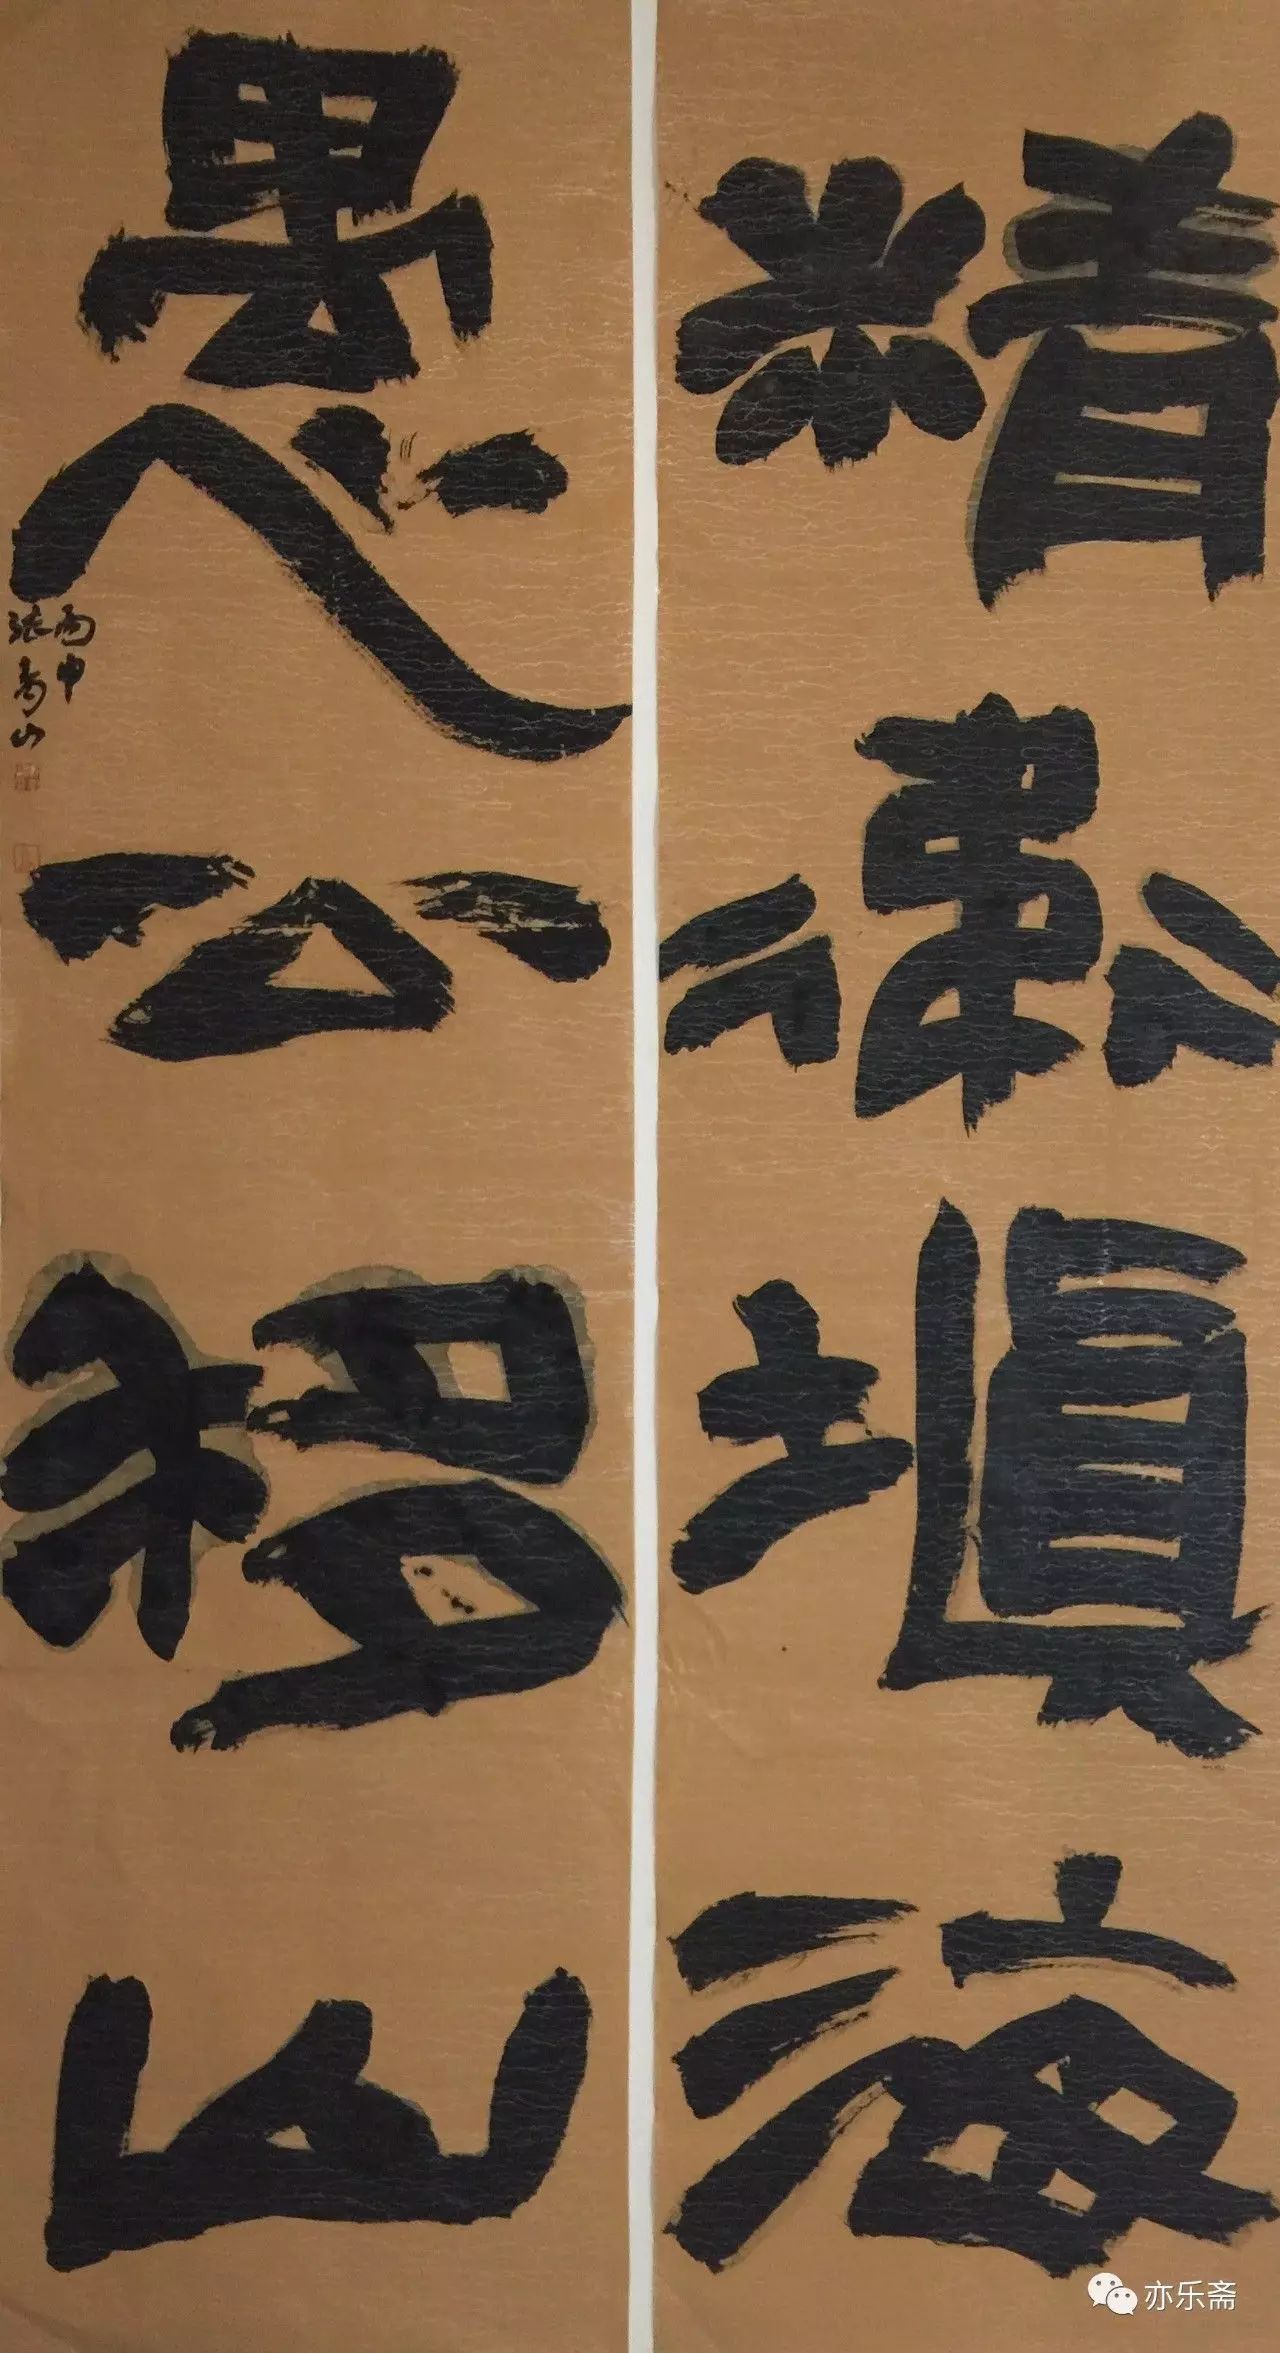 精衛填海
愚公移山
丙申
張高山
亦乐斋